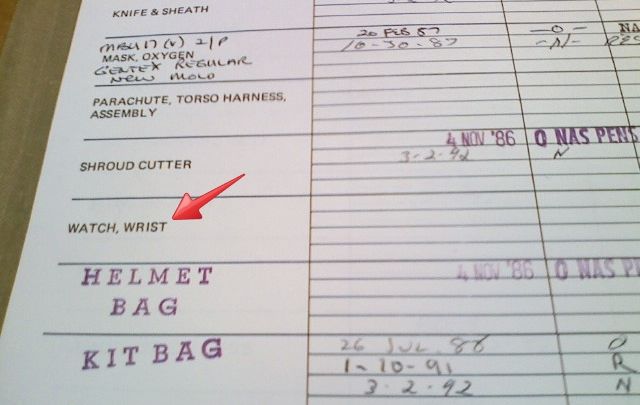 KNIFE & SHEATH
20 FEB 87 -0- NA
MBU 17 (V) 2/P 10-30-87 -N-
MASK, OXYGEN
GENTEX REGULAR
NEW MOLD
PARACHUTE, TORSO HARNESS,
ASSEMBLY
4 NOV '86 O NAS PENS
SHROUD CUTTER 3-2-92 N
WATCH, WRIST
HELMET 4 NOV '86 O NAS PE
BAG
KIT BAG 26 JUL 86 O
1-10-91 R
3-2-92 N